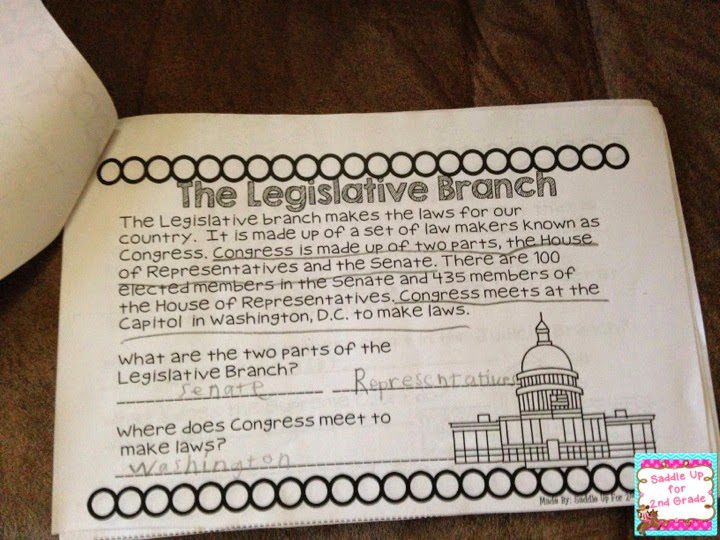 The Legislative Branch
The Legislative branch makes the laws for our
country. It is made up of a set of law makers known as
Congress. Congress is made up of two parts, the House
of Representatives and the Senate. There are 100
elected members in the Senate and 435 members of
the House of Representatives. Congress meets at the
Capitol in Washington, D.C. to make laws.
What are the two parts of the
Legislative Branch?
Senate Representatives
Where does Congress meet to
make laws?
Washington
Made By: Saddle Up For 2nd
Saddle Up
for
2nd Grade